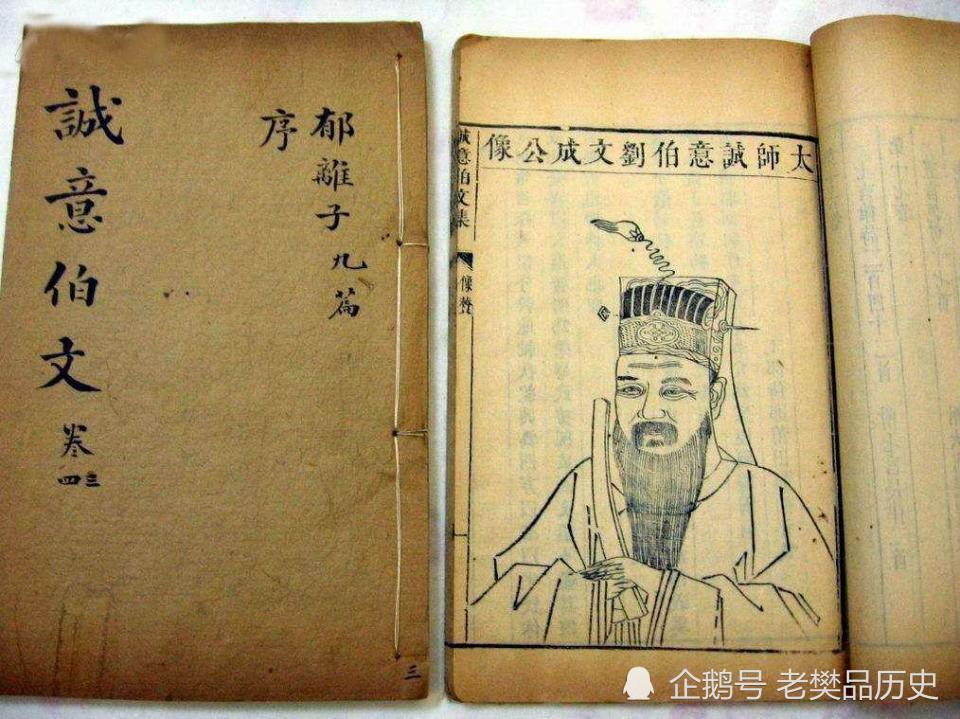 郁離子九篇
序
誠意伯文卷三四
三
太師誠意伯劉文成公像
誠意伯文集 像贊
企鹅号 老樊品历史